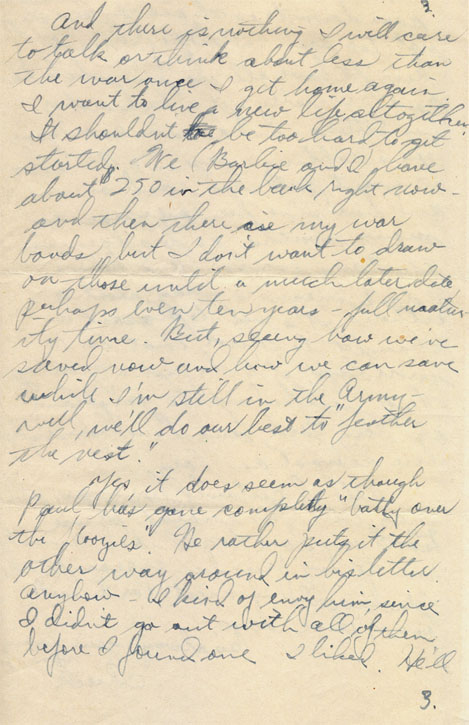 3.
And there is nothing I will care
to talk or think about less than
the war once I get home again.
I want to live a new life altogether.
It shouldn't be too hard to get
started. We (Barbie and I) have
about $250 in the bank right now -
and then there are my war
bonds, but I don't want to draw
on those until a much later date
perhaps even ten years - full matur
ity time. But, seeing how we've
saved now and how we can save
while I'm still in the Army -
well, we'll do our best to "feather
the nest."
Yes, it does seem as though
Paul has gone completely "batty over
the . He rather puts it the
other way around in his letter.
Anyhow - I kind of envy him, since
I didn't go out with all of them
before I found one I liked. He'll
3.